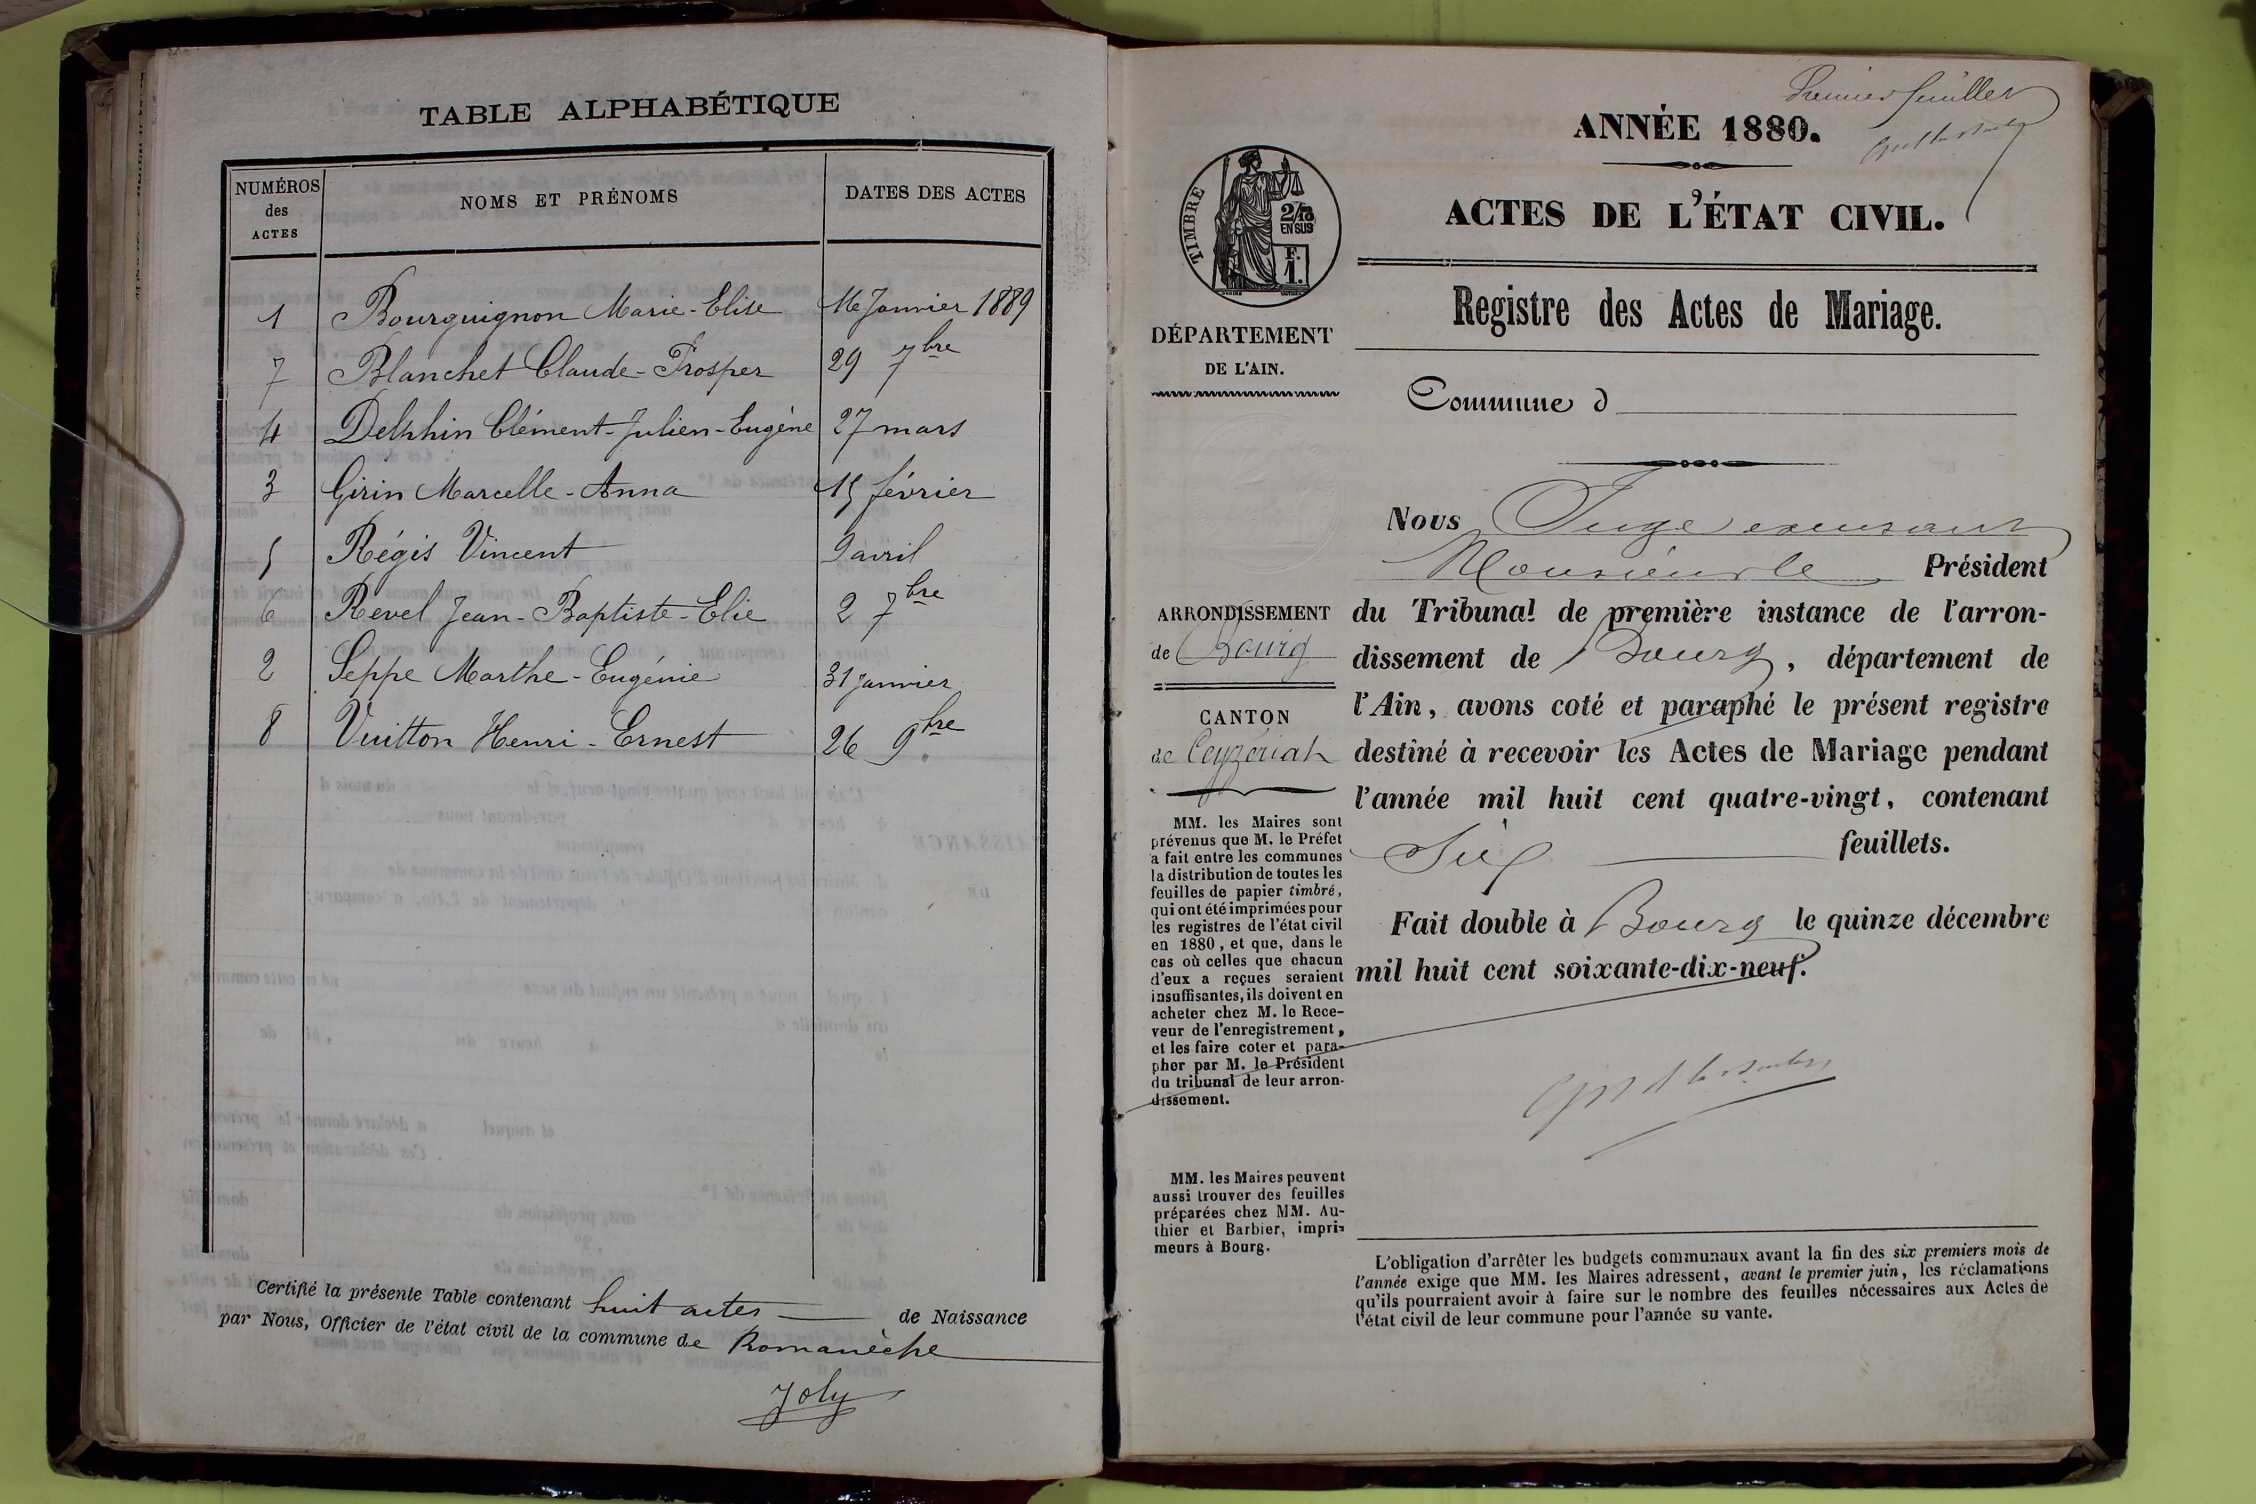 TABLE ALPHABÉTIQUE
NUMÉROS des ACTES | NOMS ET PRÉNOMS | DATES DES ACTES
1 Bourguignon Marie-Elise 16 Janvier 1889
7 Blanchet Claude-Prosper 29 7bre
4 Delphin Clément-Julien-Eugène 27 mars
3 Girin Marcelle-Anna 15 février
5 Régis Vincent 9 avril
6 Revel Jean-Baptiste-Elie 2 7bre
2 Seppe Marthe-Eugénie 31 janvier
8 Vuitton Henri-Ernest 26 9bre
Certifié la présente Table contenant huit actes de Naissance
par Nous, Officier de l'état civil de la commune de Romanèche
Joly
Premier feuillet
ANNÉE 1880.
ACTES DE L'ÉTAT CIVIL.
Registre des Actes de Mariage.
TIMBRE
2/10
EN SUS
F.
1.
DÉPARTEMENT
DE L'AIN.
ARRONDISSEMENT
de Bourg
CANTON
de Ceyzériat
MM. les Maires sont
prévenus que M. le Préfet
a fait entre les communes
la distribution de toutes les
feuilles de papier timbré,
qui ont été imprimées pour
les registres de l'état civil
en 1880, et que, dans le
cas où celles que chacun
d'eux a reçues seraient
insuffisantes, ils doivent en
acheter chez M. le Rece-
veur de l'enregistrement,
et les faire coter et para-
pher par M. le Président
du tribunal de leur arron-
dissement.
MM. les Maires peuvent
aussi trouver des feuilles
préparées chez MM. Au-
thier et Barbier, impri-
meurs à Bourg.
Commune d
Nous Juge
Monsieur le Président
du Tribunal de première instance de l'arron-
dissement de Bourg, département de
l'Ain, avons coté et paraphé le présent registre
destiné à recevoir les Actes de Mariage pendant
l'année mil huit cent quatre-vingt, contenant
Six feuillets.
Fait double à Bourg le quinze décembre
mil huit cent soixante-dix-neuf.
L'obligation d'arrêter les budgets communaux avant la fin des six premiers mois de
l'année exige que MM. les Maires adressent, avant le premier juin, les réclamations
qu'ils pourraient avoir à faire sur le nombre des feuilles nécessaires aux Actes de
l'état civil de leur commune pour l'année su vante.